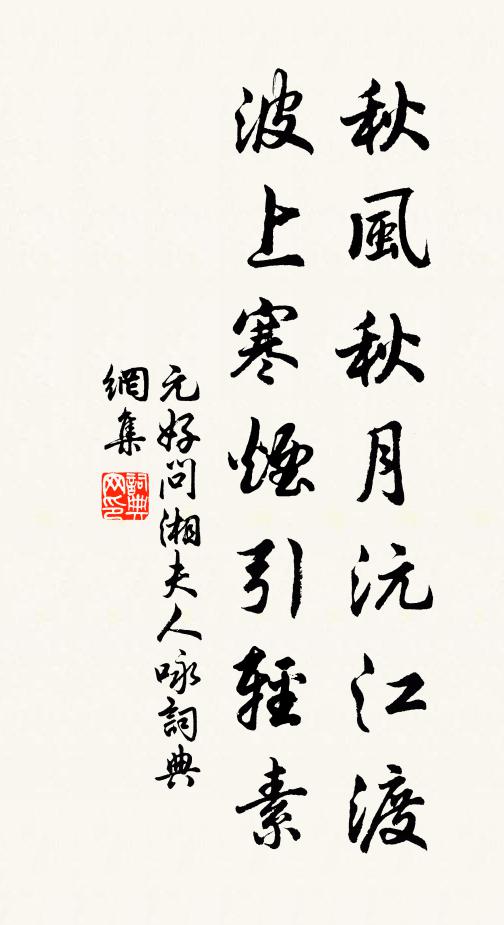 秋風秋月沅江渡
波上寒煙引輕素
元好問湘夫人咏詞典
網集
詞典网印